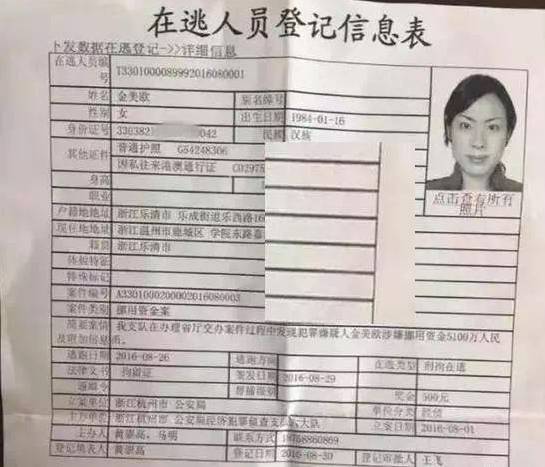 在逃人员登记信息表
卜发数据在逃登记->>详细信息
在逃人员编号 T3301000089992016080001
姓名 金美欧 别名绰号
性别 女 出生日期 1984-01-16
身份证号 330382 042 民族 汉族
其他证件 普通护照 G54248306
因私往来港澳通行证 C02975
身高
职业
户籍地地址 浙江乐清市 乐成街道乐西路16
现住地地址 浙江温州市鹿城区 学院东路嘉
籍贯 浙江乐清市
体貌特征
特殊标记
点击查看所有照片
案件编号 A3301000200002016080003
案件类别 挪用资金案
简要案情及附加信息 我支队在办理省厅交办案件过程中发现犯罪嫌疑人金美欧涉嫌挪用资金5100万人民币。
逃跑日期 2016-08-26 逃跑方向 在逃类型 刑拘在逃
法律文书 拘留证 签发日期 2016-08-29
通缉令 督捕级别 奖金 500元
立案单位 浙江杭州市 公安局 单位分类 经侦
主办单位 浙江杭州市 公安局经济犯罪侦查支队 大队 立案日期 2016-08-01
主办人 黄崇高、马明 联系方式 19758860869
登记填表人 黄崇高 登记日期 2016-08-30 登记审批人 王飞